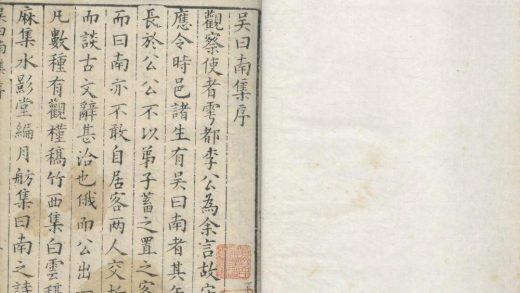 吳曰南集序
觀察使者雩都李公為余言故
應令時邑諸生有吳曰南者其年
長於公公不以弟子蓄之置之客
而曰南亦不敢自居客兩人交
而談古文辭甚洽也俄而公出
凡數種有觀槿稿竹西集白雲稿
麻集水影堂編月舫集曰南之詩
吳曰南集序